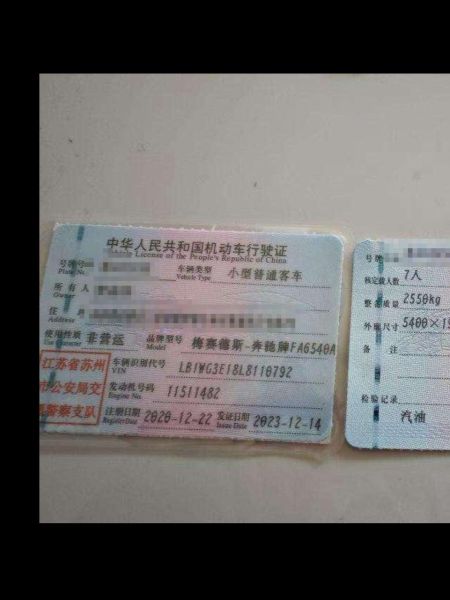 中华人民共和国机动车行驶证
Vehicle License of the People's Republic of China
号牌号
Plate No.
车辆类型 小型普通客车
Vehicle Type
所有人
Owner
住
使用性质 非营运
Use Character
品牌型号 梅赛德斯-奔驰牌FA6540A
Model
江苏省苏州
市公安局交
警察支队
车辆识别代号 LB1WG3E18L8110792
VIN
发动机号码 11511482
Engine No.
注册日期 2020-12-22
Register Date
发证日期 2023-12-14
Issue Date
号牌
核定载人数 7人
整备质量 2550kg
外廓尺寸 5400×19
备 注
检验记录
汽油